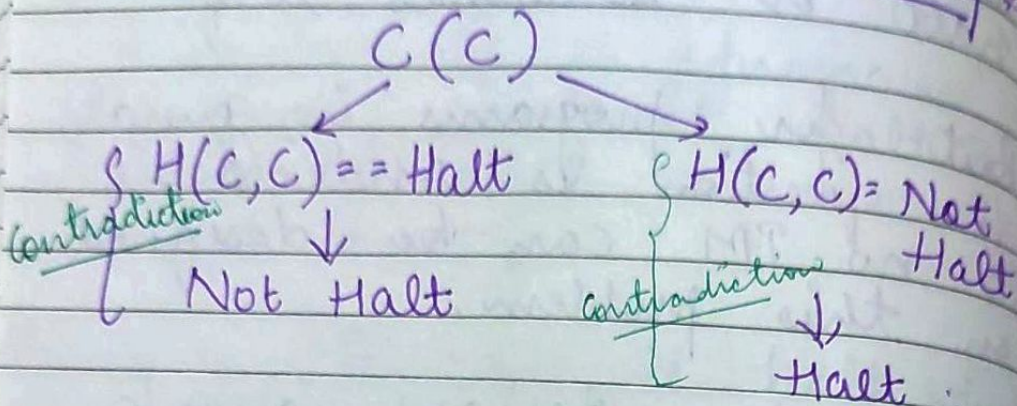 C(C)
H(C,C) == Halt
contradiction
Not Halt
H(C,C)= Not
Halt
contradiction
Halt.